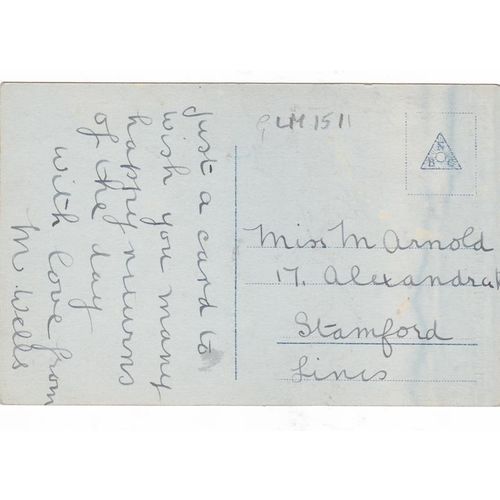 Just a card to
wish you many
happy returns
of the day
with love from
M Wells
GLM 1511
N
B C
Miss M Arnold
17. Alexandra
Stamford
Lincs